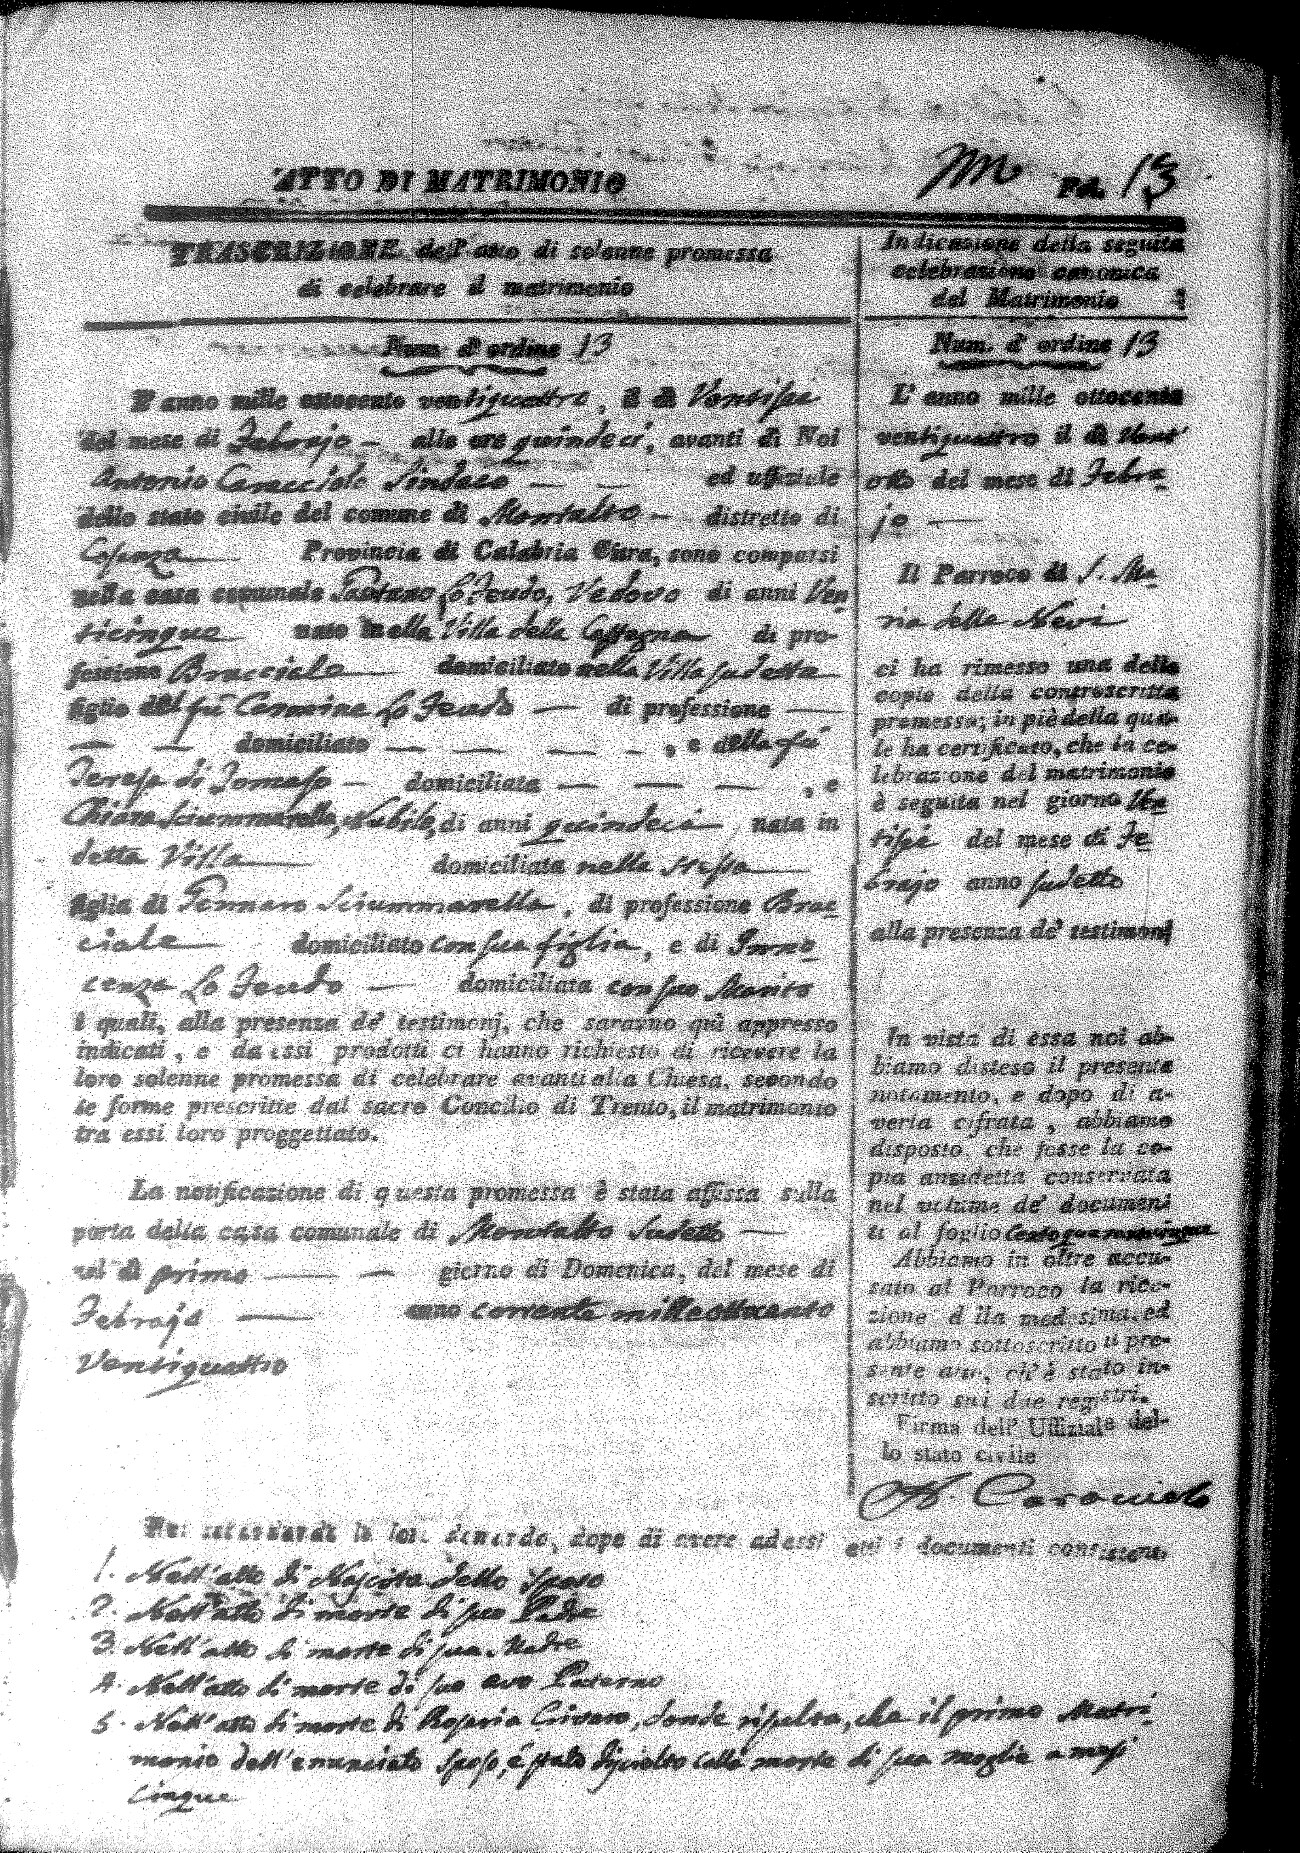 ATTO DI MATRIMONIO
Pd. 13
TRASCRIZIONE dell'atto di solenne promessa
di celebrare il matrimonio
Num. d'ordine 13
L'anno mille ottocento ventiquattro, il dì Ventisei
del mese di Febrajo — alle ore quindeci, avanti di Noi
Antonio Caracciolo Sindaco — — ed uffiziale
dello stato civile del comune di Montalto — distretto di
Cosenza — Provincia di Calabria Citra, sono comparsi
nella casa comunale Gaetano Lo Feudo, Vedovo di anni Ven=
ticinque — nato in nella Villa della di pro-
fessione Bracciale — domiciliato nella Villa sudetta
figlio del fù Carmine Lo Feudo — di professione —
— — domiciliato — — — — , e della fù
Teresa di Tomaso — domiciliata — — — , e
Chiara Sciummarella, Nubile, di anni quindeci — nata in
detta Villa — domiciliata nella stessa —
figlia di Gennaro Sciummarella, di professione Brac=
ciale — domiciliato con sua figlia, e di Inno=
cenza Lo Feudo — domiciliata con suo Marito
i quali, alla presenza de' testimonj, che saranno quì appresso
indicati, e da essi prodotti ci hanno richiesto di ricevere la
loro solenne promessa di celebrare avanti alla Chiesa, secondo
le forme prescritte dal sacro Concilio di Trento, il matrimonio
tra essi loro proggettato.
La notificazione di questa promessa è stata affissa sulla
porta della casa comunale di Montalto Sudetto —
nel dì primo — — giorno di Domenica, del mese di
Febrajo — anno corrente milleottocento
Ventiquattro
Indicazione della seguita
celebrazione canonica
del Matrimonio
Num. d'ordine 13
L'anno mille ottocento
ventiquattro il dì Vent'
otto del mese di Febra=
jo —
Il Parroco di S. Ma=
ria della Nevi
ci ha rimesso una della
copie della controscritta
promessa; in piè della qua-
le ha certificato, che la ce-
lebrazione del matrimonio
è seguita nel giorno Ven=
tisei del mese di Fe=
brajo anno sudetto
alla presenza de' testimonj
In vista di essa noi ab-
biamo disteso il presente
notamento, e dopo di a-
verla cifrata, abbiamo
disposto, che fosse la co-
pia anzidetta conservata
nel volume de' documen-
ti al foglio
Abbiamo in oltre accu-
sato al Parroco la rice-
zione della medesima, ed
abbiamo sottoscritto il pre-
sente atto, ch'è stato in-
scritto sui due registri.
Firma dell' Uffiziale del-
lo stato civile
Caracciolo
Noi la loro domanda, dopo di avere ad essi letti i documenti consistenti
1. Nell'atto di Nascita dello Sposo
2. Nell'atto di morte di suo Padre
3. Nell'atto di morte di sua Madre
4. Nell'atto di morte di suo avo Paterno
5. Nell'atto di morte di Rosaria, donde risulta, che il primo Matri=
monio dell'enunciato Sposo, è stato disciolto colla morte di sua moglie a mesi
cinque